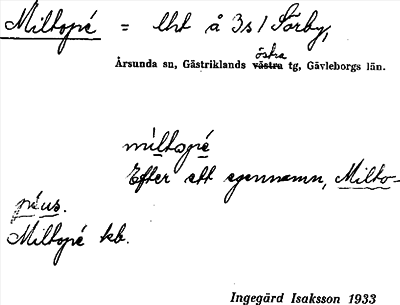 Miltopé = lht å 3s/ Sörby,
östra
Årsunda sn, Gästriklands västra tg, Gävleborgs län.
miltopé
Efter ett egennamn, Milto-
péus.
Miltopé kb.
Ingegärd Isaksson 1933